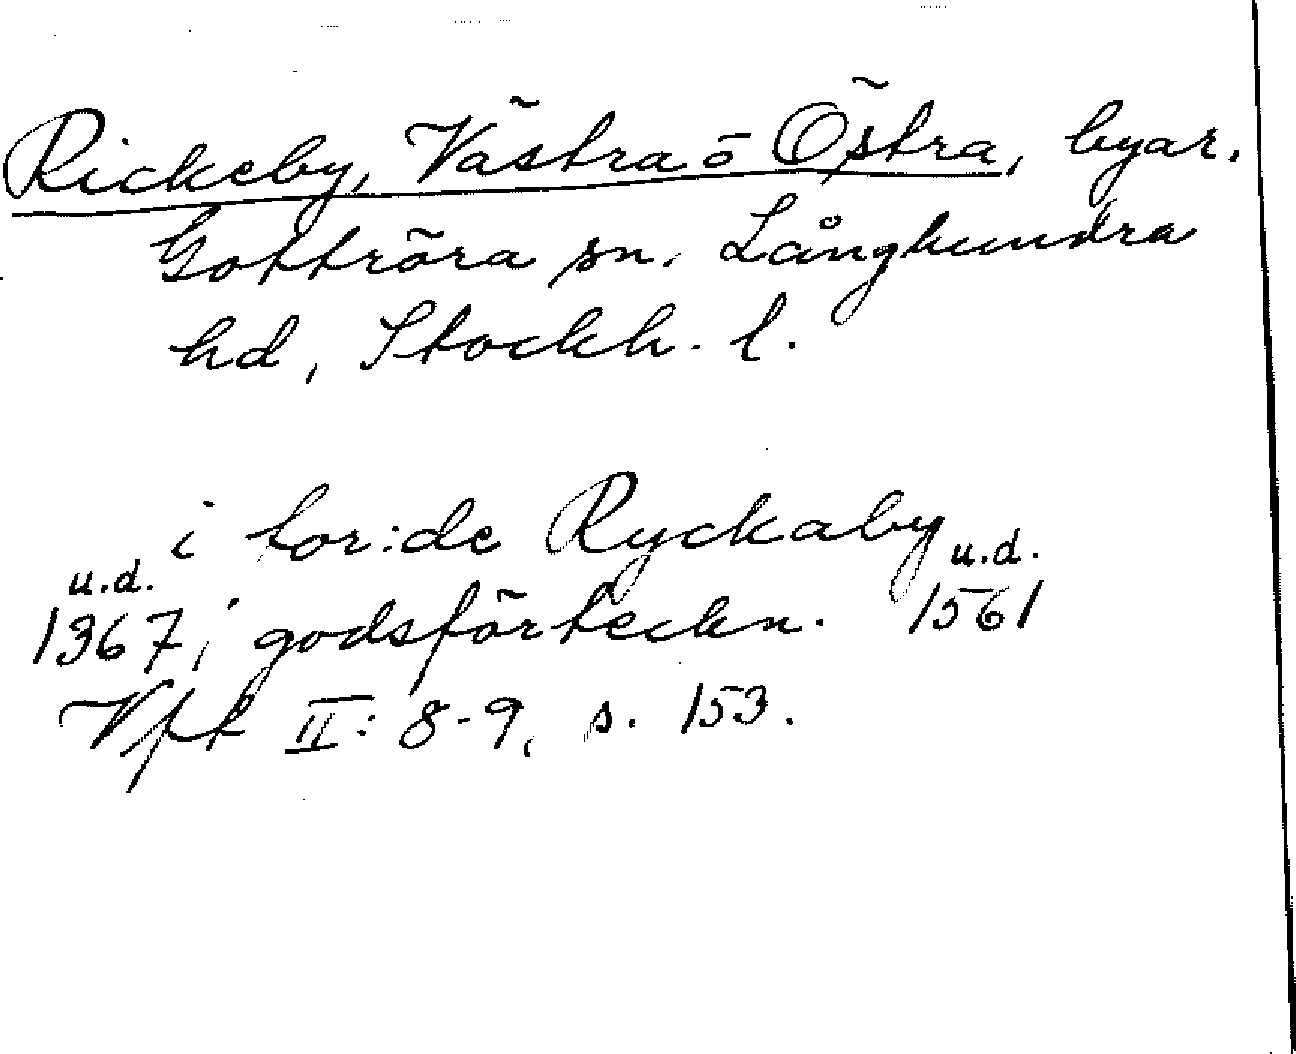 Rickeby, Västra o Östra, byar.
Gottröra sn. Långhundra
hd, Stockh. l.
i for:de Ryckaby
u.d. u.d.
1367, i godsförteckn. 1561
Vfk II: 8-9, s. 153.